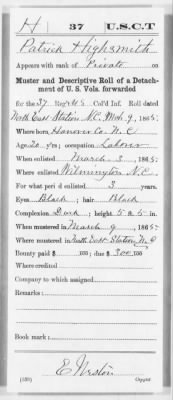 H 37 U.S.C.T
Patrick Highsmith
Appears with rank of Private on
Muster and Descriptive Roll of a Detach-
ment of U. S. Vols. forwarded
for the 37 Reg't U S Col'd Inf. Roll dated
North East Station N.C. Mch. 9, 1865.
Where born Hanover Co. N.C
Age 20 y'rs; occupation Laborer
When enlisted March 3, 1865.
Where enlisted Wilmington N.C.
For what period enlisted 3 years.
Eyes Black; hair Black
Complexion Dark; height 5 ft. 5 in.
When mustered in March 9, 1865
Where mustered in North East Station N.C
Bounty paid $ 100; due $ 300 100
Where credited
Company to which assigned
Remarks:
Book mark:
E Weston
(339) Copyist